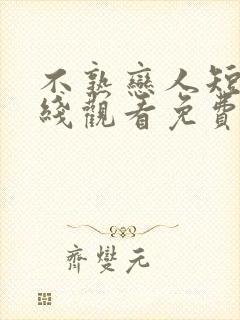 不熟戀人短
綫觀看免費
齊燮元